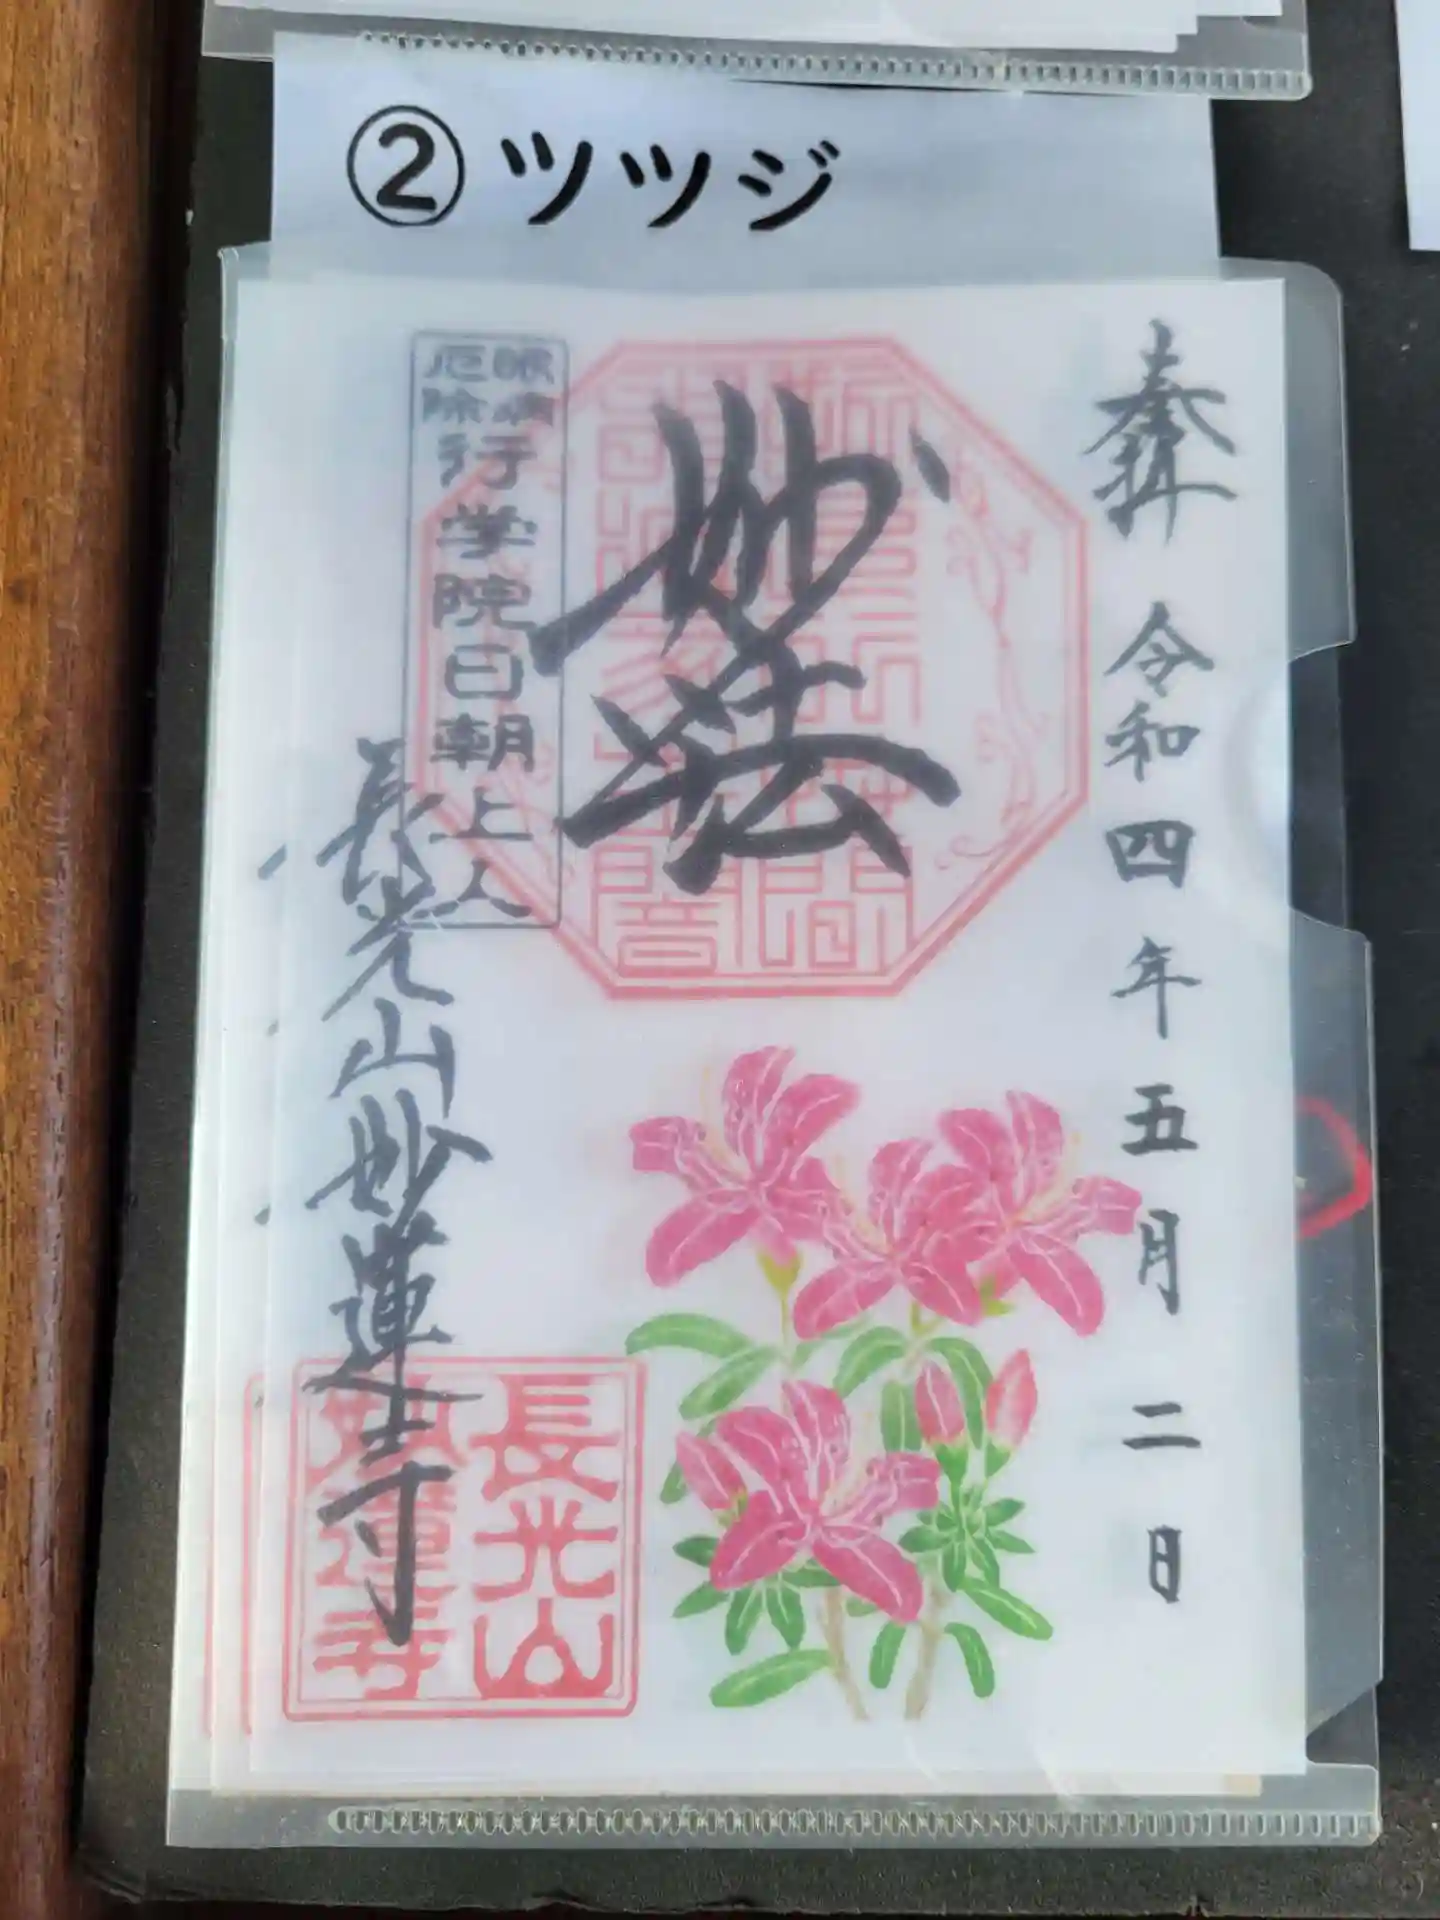 ②ツツジ
奉拝
令和四年五月二日
妙法
眼病
厄除
行学院日朝上人
長光山妙蓮寺
長光山
妙蓮寺